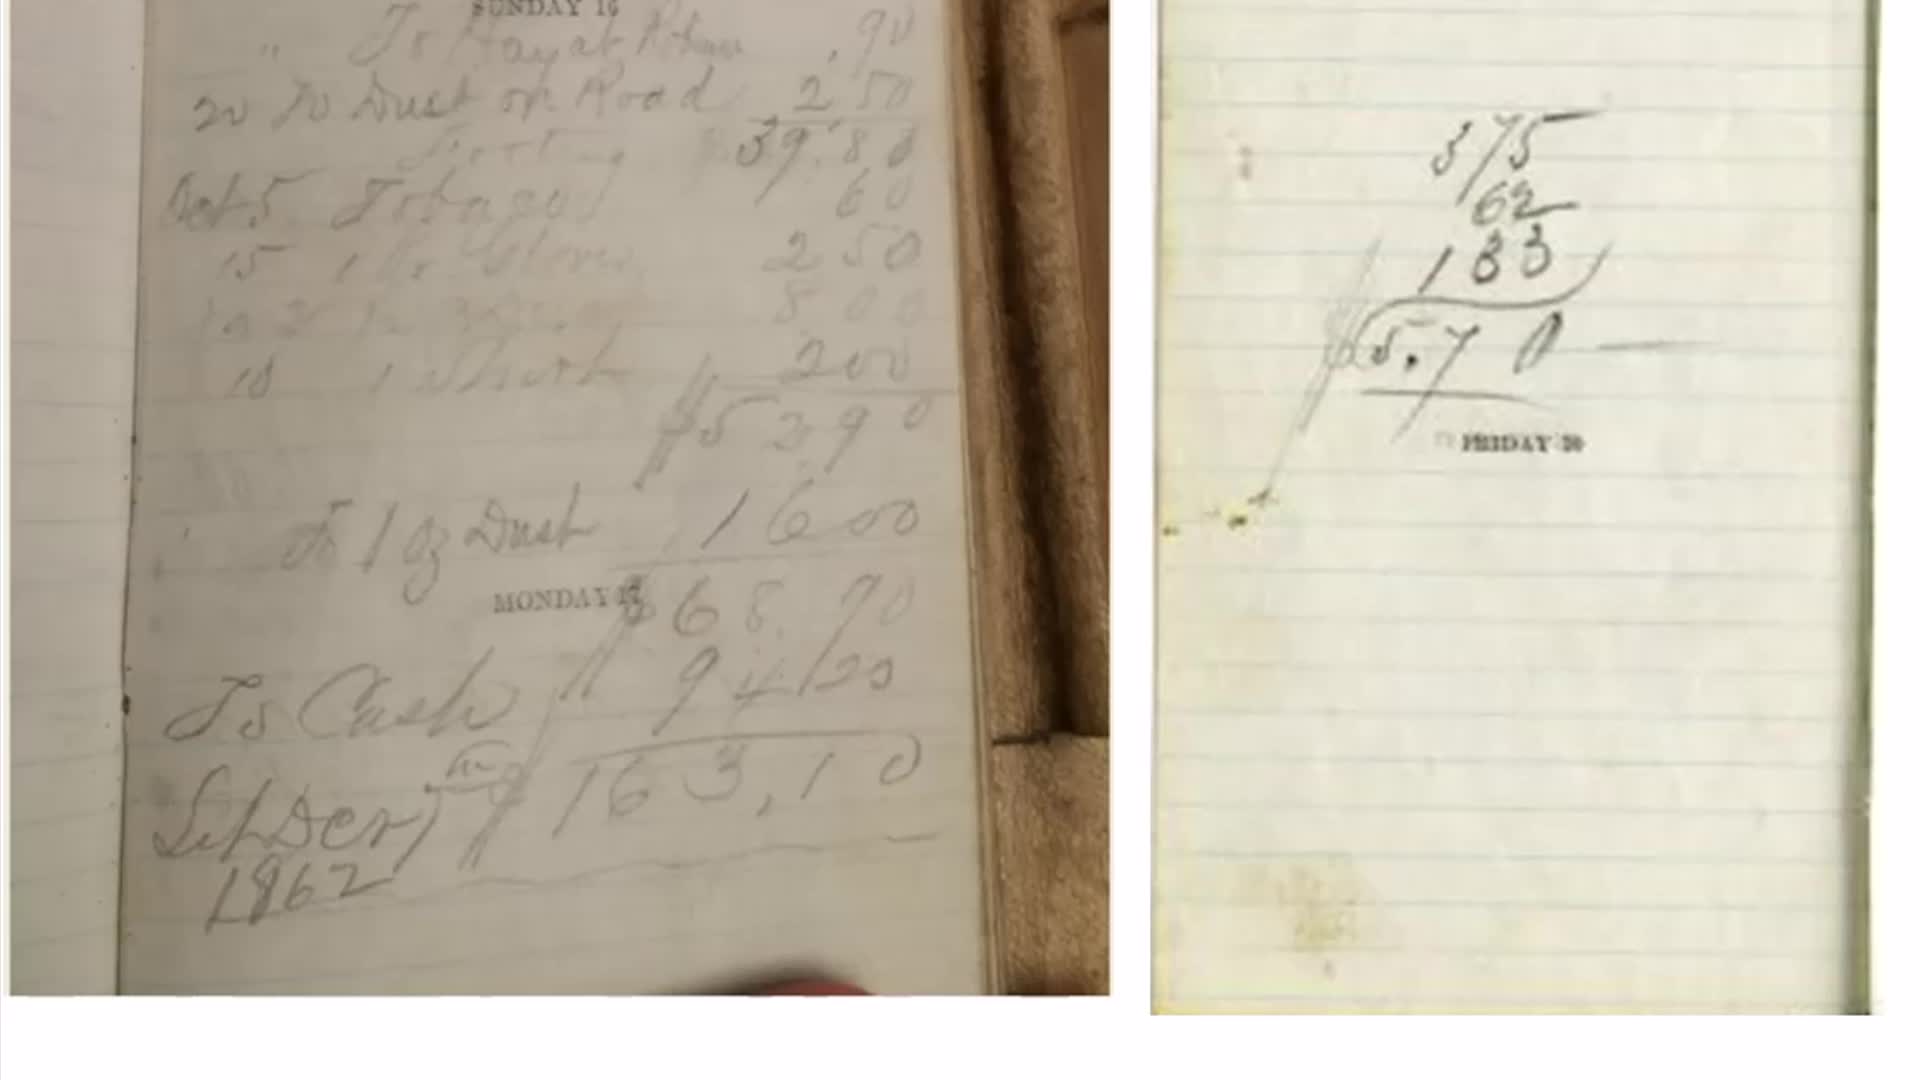 SUNDAY 16
" To Hay at .90
20 To Dust on Road 2 50
39.80
Oct. 5 60
15 1 Pr Gloves 2 50
8 00
18 1 Shirt 2 00
$52 90
To 1 oz Dust 16 00
MONDAY 17
$68.90
To Cash 94 20
163,10
1862
375
62
133
$5.70
FRIDAY 20